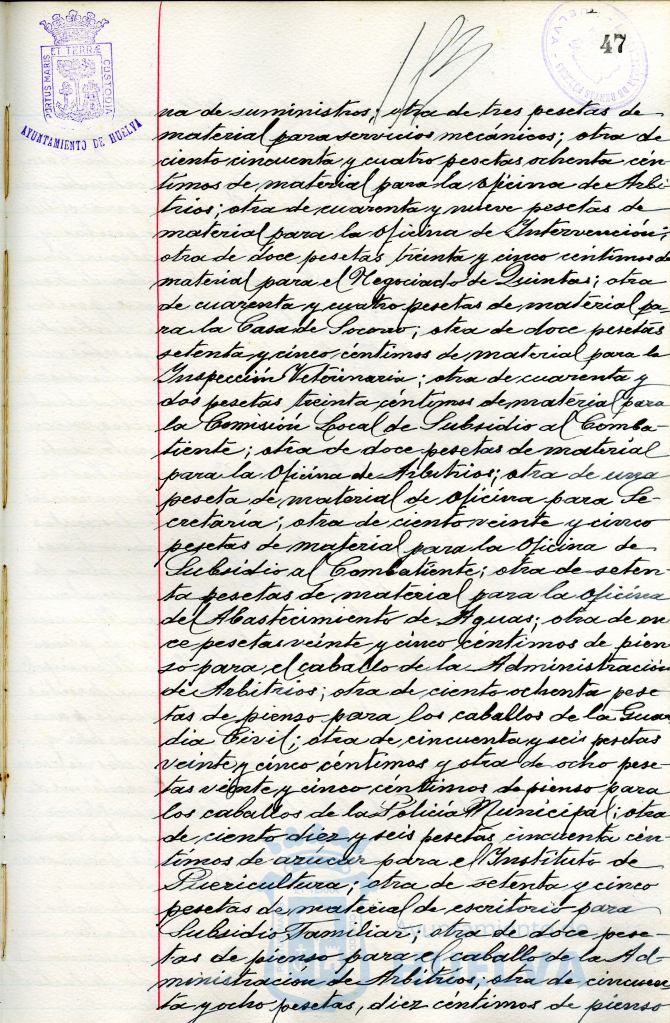 PORTUS MARIS ET TERRÆ CUSTODIA
AYUNTAMIENTO DE HUELVA
47
na de suministros; otra de tres pesetas de
material para servicios mecánicos; otra de
ciento cincuenta y cuatro pesetas ochenta cén-
timos de material para la oficina de Arbi-
trios; otra de cuarenta y nueve pesetas de
material para la Oficina de Intervención;
otra de doce pesetas treinta y cinco céntimos de
material para el Negociado de Quintas; otra
de cuarenta y cuatro pesetas de material pa-
ra la Casa de Socorro; otra de doce pesetas
setenta y cinco céntimos de material para la
Inspección Veterinaria; otra de cuarenta y
dos pesetas treinta céntimos de material para
la Comisión Local de Subsidio al Comba-
tiente; otra de doce pesetas de material
para la Oficina de Arbitrios; otra de una
peseta de material de oficina para Se-
cretaría; otra de ciento veinte y cinco
pesetas de material para la Oficina de
Subsidio al Combatiente; otra de seten-
ta pesetas de material para la oficina
del Abastecimiento de Aguas; otra de on-
ce pesetas veinte y cinco céntimos de pien-
so para el caballo de la Administración
de Arbitrios; otra de ciento ochenta pese-
tas de pienso para los caballos de la Guar-
dia Civil; otra de cincuenta y seis pesetas
veinte y cinco céntimos y otra de ocho pese-
tas veinte y cinco céntimos de pienso para
los caballos de la Policía Municipal; otra
de ciento diez y seis pesetas cincuenta cén-
timos de azúcar para el Instituto de
Puericultura; otra de setenta y cinco
pesetas de material de escritorio para
Subsidio Familiar; otra de doce pese-
tas de pienso para el caballo de la Ad-
ministración de Arbitrios; otra de cincuen-
ta y ocho pesetas, diez céntimos de pienso
Ayuntamiento de
HUELVA